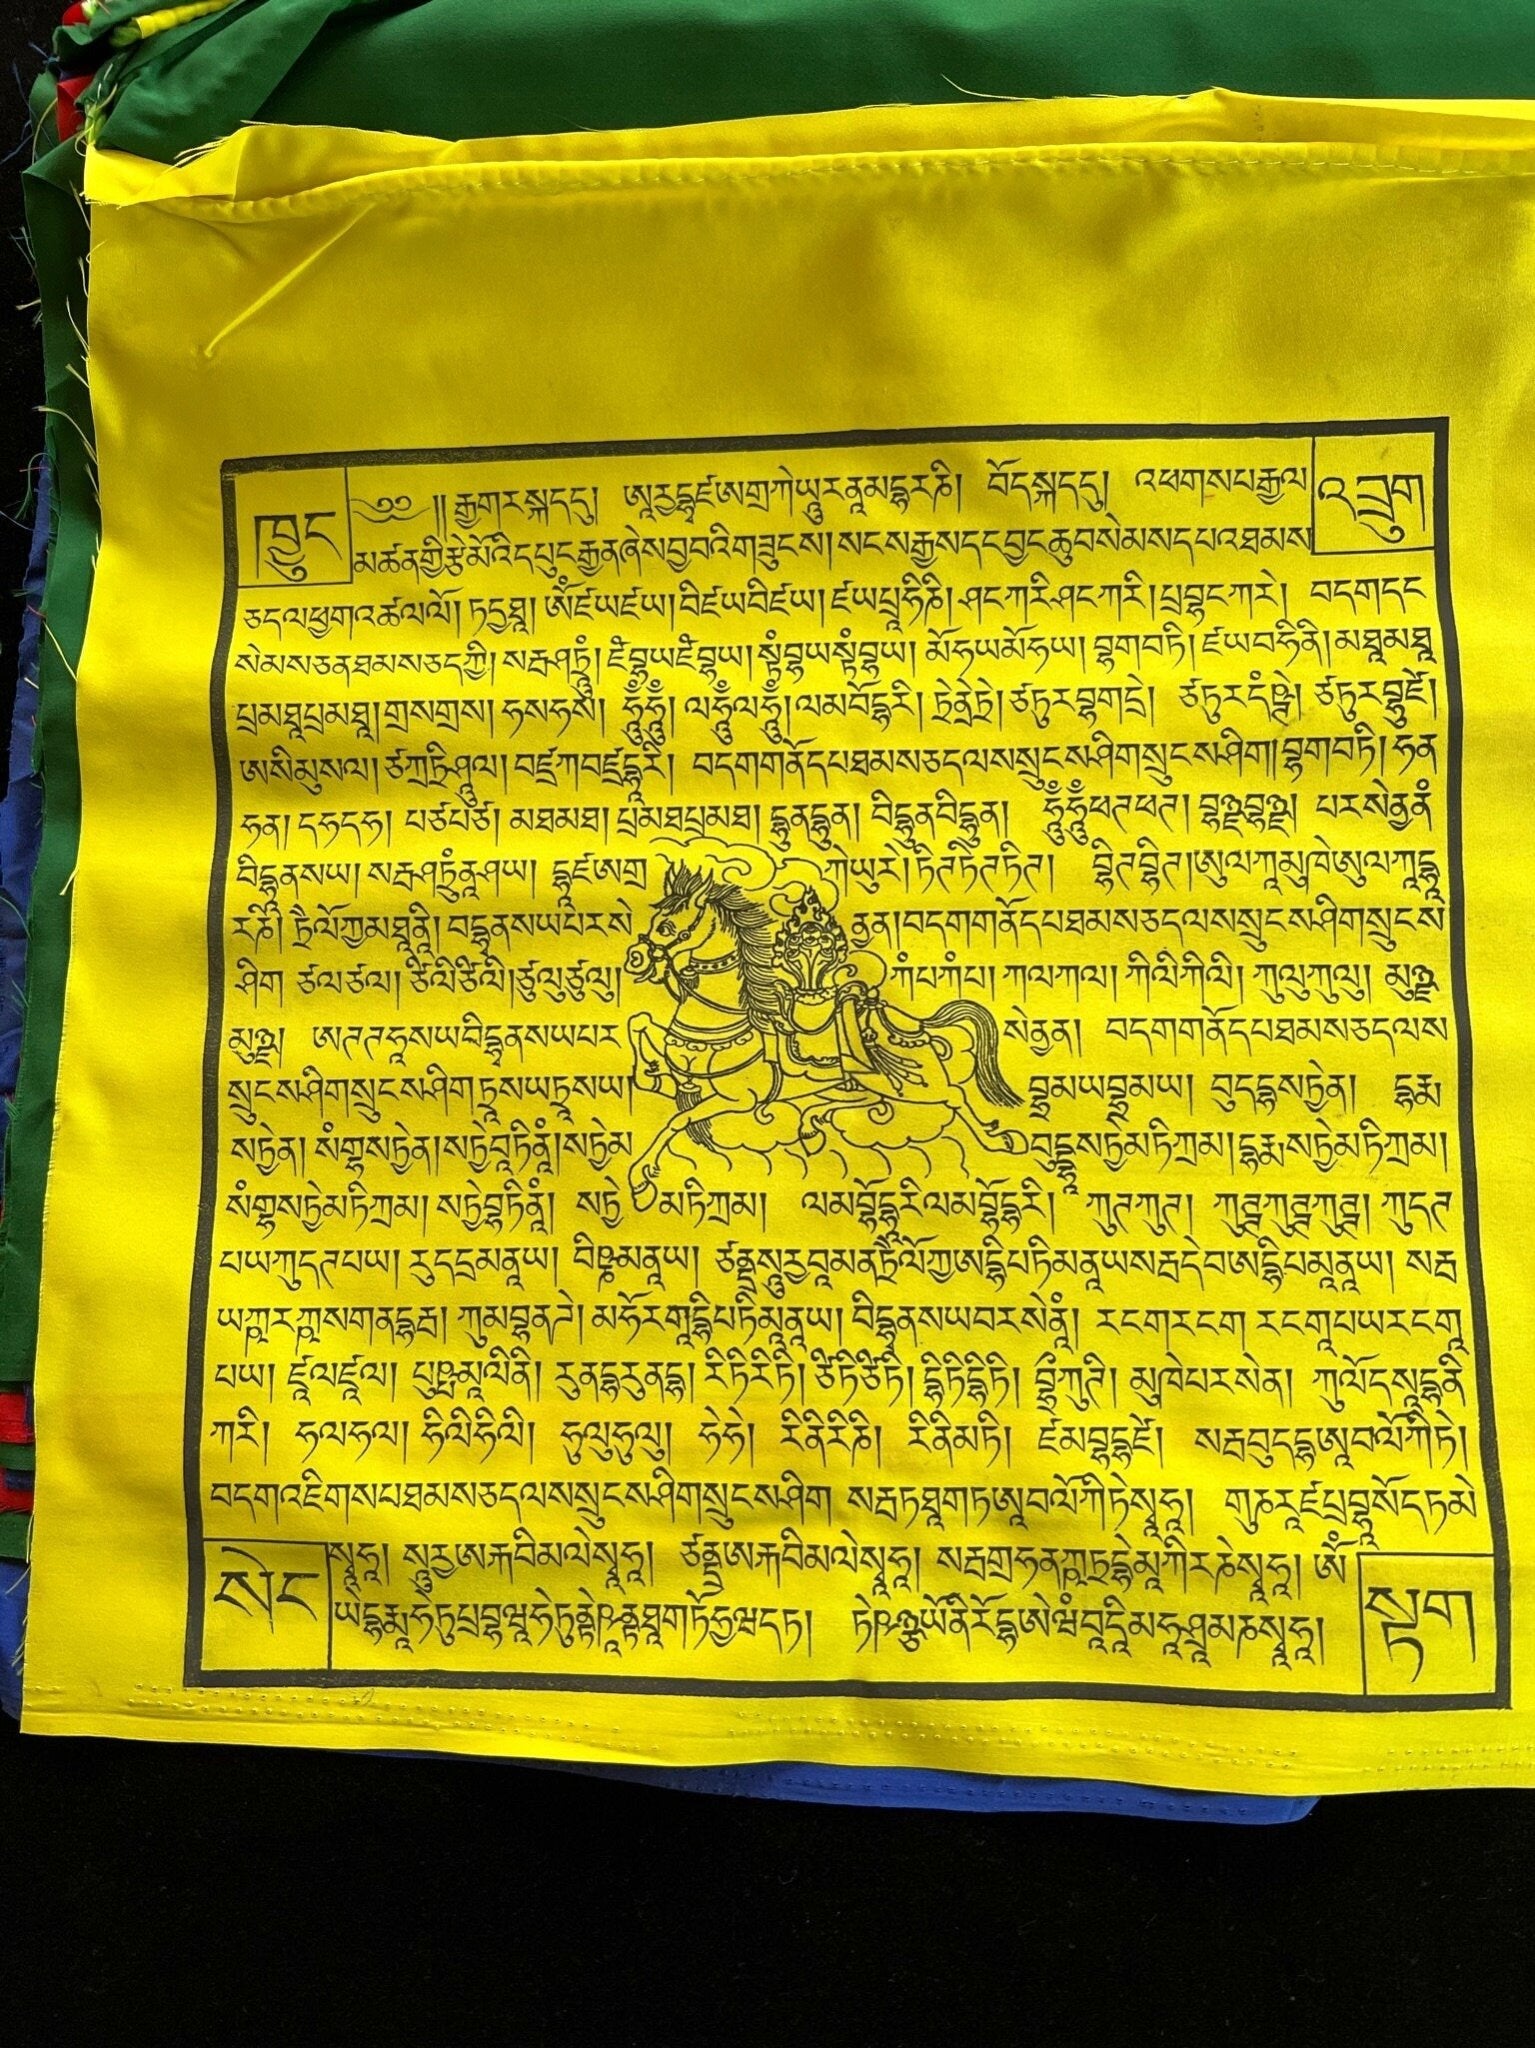 ཁྱུང
༄༅།། རྒྱ་གར་སྐད་དུ། ཨཱརྱདྷྭཛཨགྲཀེཡཱུརནཱམདྷཱརཎི། བོད་སྐད་དུ། འཕགས་པ་རྒྱལ་
འབྲུག
མཚན་གྱི་རྩེ་མོའི་དཔུང་རྒྱན་ཞེས་བྱ་བའི་གཟུངས། སངས་རྒྱས་དང་བྱང་ཆུབ་སེམས་དཔའ་ཐམས་
ཅད་ལ་ཕྱག་འཚལ་ལོ། ཏདྱཐཱ། ཨོཾ་ཛཡཛཡ། བིཛཡབིཛཡ། ཛཡཔྲཱཧིཎི། ཤངཀརིཤངཀརི། པྲབྷངཀརི། བདག་དང་
སེམས་ཅན་ཐམས་ཅད་ཀྱི། སརྦཤཏྲཱུཾ། ཛཾབྷཡཛཾབྷཡ། སྟཾབྷཡསྟཾབྷཡ། མོཧཡམོཧཡ། བྷགབཏི། ཛཡབཧིནི། མཐཱམཐཱ
པྲམཐཱཔྲམཐཱ། གྲསགྲས། ཧསཧས། ཧཱུྃཧཱུྃ། ལཧཱུྃལཧཱུྃ། ལམབོདྷརི། ཏྲིནེཏྲེ། ཙཏུརབྷགདྲེ། ཙཏུརདཾཥྚྲེ། ཙཏུརབྷུཛེ།
ཨསིམུསལ། ཙཀྲཏྲིཤཱུལ། བཛྲཀབཛྲདྷཱརི། བདག་གནོད་པ་ཐམས་ཅད་ལས་སྲུངས་ཤིག་སྲུངས་ཤིག། བྷགབཏི། ཧན
ཧན། དཧདཧ། པཙཔཙ། མཐམཐ། པྲམཐཔྲམཐ། དྷུནདྷུན། བིདྷུནབིདྷུན། ཧཱུྃཧཱུྃཕཊཕཊ། བྷཉྫབྷཉྫ། པརསེནྱནཾ
བིདྷྭནསཡ། སརྦཤཏྲུནཱཤཡ། དྷྭཛཨགྲ ཀེཡུརེ། ཏིཊཏིཊཏིཊ། བྷིཊབྷིཊ། ཨུལཀཱམུཁེཨུལཀཱདྷཱ
རཎི། ཏྲཻལོཀྱམཐཱནཱི། བདྷྭནསཡཔརསེ ནྱན། བདག་གནོད་པ་ཐམས་ཅད་ལས་སྲུངས་ཤིག་སྲུངས་
ཤིག ཙལཙལ། ཙིལིཙིལི། ཙུལུཙུལུ། ཀཾཔཀཾཔ། ཀལཀལ། ཀིལིཀིལི། ཀུལུཀུལུ། མུཉྩ
མུཉྩ། ཨཊཊཧཱསཡབིདྷྭནསཡཔར སེནྱན། བདག་གནོད་པ་ཐམས་ཅད་ལས་
སྲུངས་ཤིག་སྲུངས་ཤིག་ཏྲཱསཡཏྲཱསཡ། བྷྲམཡབྷྲམཡ། བུདདྷསཏྱེན། དྷརྨ
སཏྱེན། སཾགྷསཏྱེན། སཏྱེབཱཏིནཱཾ། སཏྱེམ བུདྡྷསཏྱེམཏིཀྲམ། དྷརྨསཏྱེམཏིཀྲམ།
སཾགྷསཏྱེམཏིཀྲམ། སཏྱེབྷཏིནཱཾ། སཏྱེ མཏིཀྲམ། ལམབྷོདྷརིལམབྷོདྷརི། ཀུཊཀུཊ། ཀུཊྚཀུཊྚཀུཊྚ། ཀུདཊ
པཡཀུདཊཔཡ། རུདདྲམནཱཡ། བིཥྞམནཱཡ། ཙནྡྲསཱུརྱབཱམནཏྲཻལོཀྱཨདྷིཔཏིམནཱཡསརྦདེབཨདྷིཔམཱནཱཡ། སརྦ
ཡཀྵརཀྵསགནདྷརྦ། ཀུམབྷནཌེ། མཧོརགཱདྷིཔཏིམཱནཱཡ། བིདྷྭནསཡབརསེནཱཾ། རངགརངག རངགཱཔཡརངགཱ
པཡ། ཛྭལཛྭལ། པུཥྤམཱལིནི། རུནདྷརུནདྷ། རིཏིརིཏི། ཙིཏིཙིཏི། དྷིཏིདྷིཏི། བྷྲྀཾཀུཊི། མུཁེཔརསེན། ཀུལོདསཱདྷནི
ཀརི། ཧལཧལ། ཧིལིཧིལི། ཧུལུཧུལུ། ཧེཧེ། རིནིརིཎི། རིནིམཏི། ཛམབྷདྷཛེ། སརྦབུདདྷཨཱབལོཀིཏེ།
བདག་འཇིགས་པ་ཐམས་ཅད་ལས་སྲུངས་ཤིག་སྲུངས་ཤིག སརྦཏཐཱགཏཨཱབལོཀིཏེསྭཱཧཱ། གུཎརཱཛཔྲབྷཱསོདཏམེ
སེང
སྭཱཧཱ། སཱུརྱཨརྐབིམལེསྭཱཧཱ། ཙནྡྲཨརྐབིམལེསྭཱཧཱ། སརྦགྲཧནཀྵཏྲདྷེམཱཀིརཎེསྭཱཧཱ། ཨོཾ
སྟག
ཡེདྷརྨཱཧེཏུཔྲབྷཝཱཧེཏུནྟེཥཱནྟཐཱགཏོཧྱཝདཏ། ཏེཥཉྩཡོནིརོདྷཨེཝཾབཱདཱིམཧཱཤྲཱམཎསྭཱཧཱ།